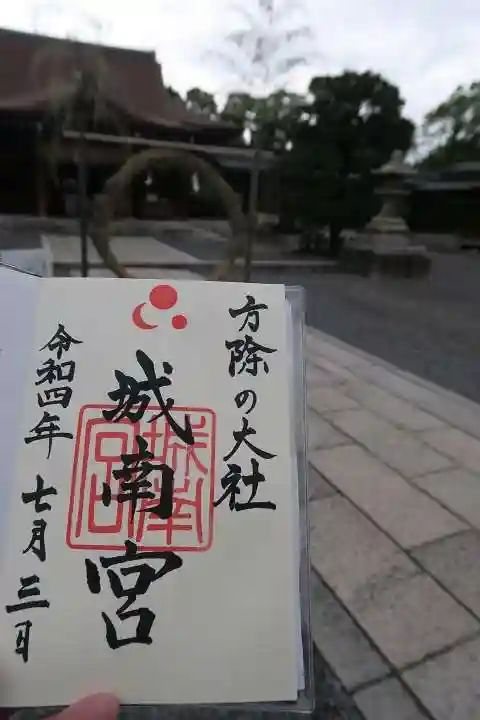 方除の大社
城南宮
城南宮
令和四年七月三日